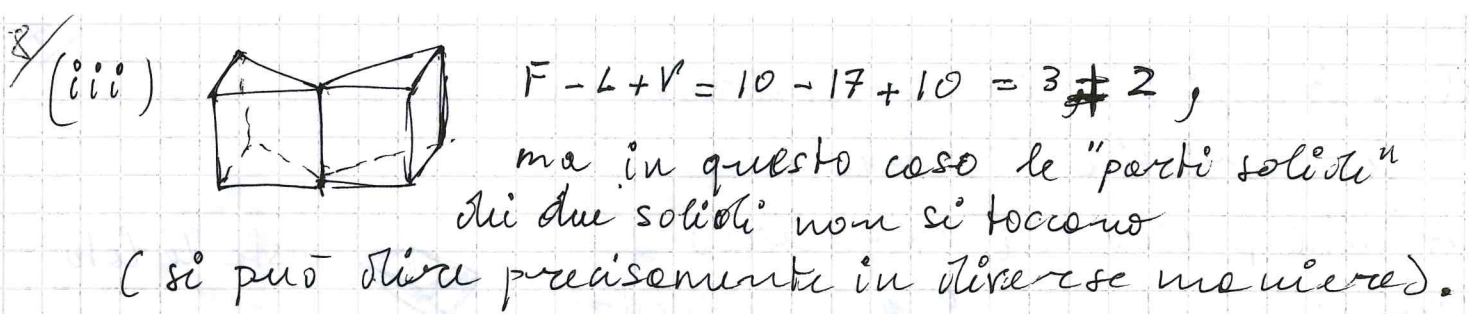 8/
(iii) F - L + V = 10 - 17 + 10 = 3 ≠ 2 ,
ma in questo caso le "parti solide"
dei due solidi non si toccano
(si può dire precisamente in diverse maniere).